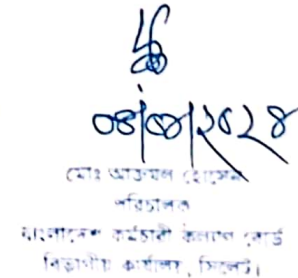 ০৪/০৮/২০২৪
মোঃ আজমল হোসেন
পরিচালক
বাংলাদেশ কর্মচারী কল্যাণ বোর্ড
বিভাগীয় কার্যালয়, সিলেট।